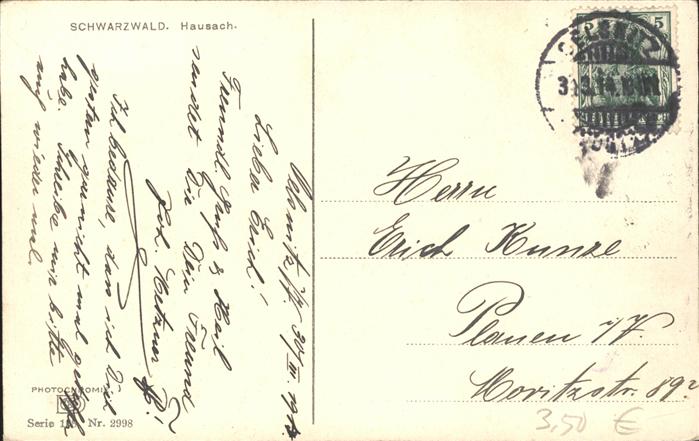 SCHWARZWALD. Hausach.
Oelsnitz i/V. 30/III. 1914
Lieber Erich!
Freundl. Gruß & Heil
sendet Dir Dein Freund
Joh.
Ich bedaure, daß ich Dich
gestern gar nicht mal
habe. Schreibe mir bitte
auch wieder mal.
PHOTOCHROMIE
Serie Nr. 2998
5
OELSNITZ
Herrn
Erich Kunze
Plauen i/V.
Moritzstr. 89
3,50 €